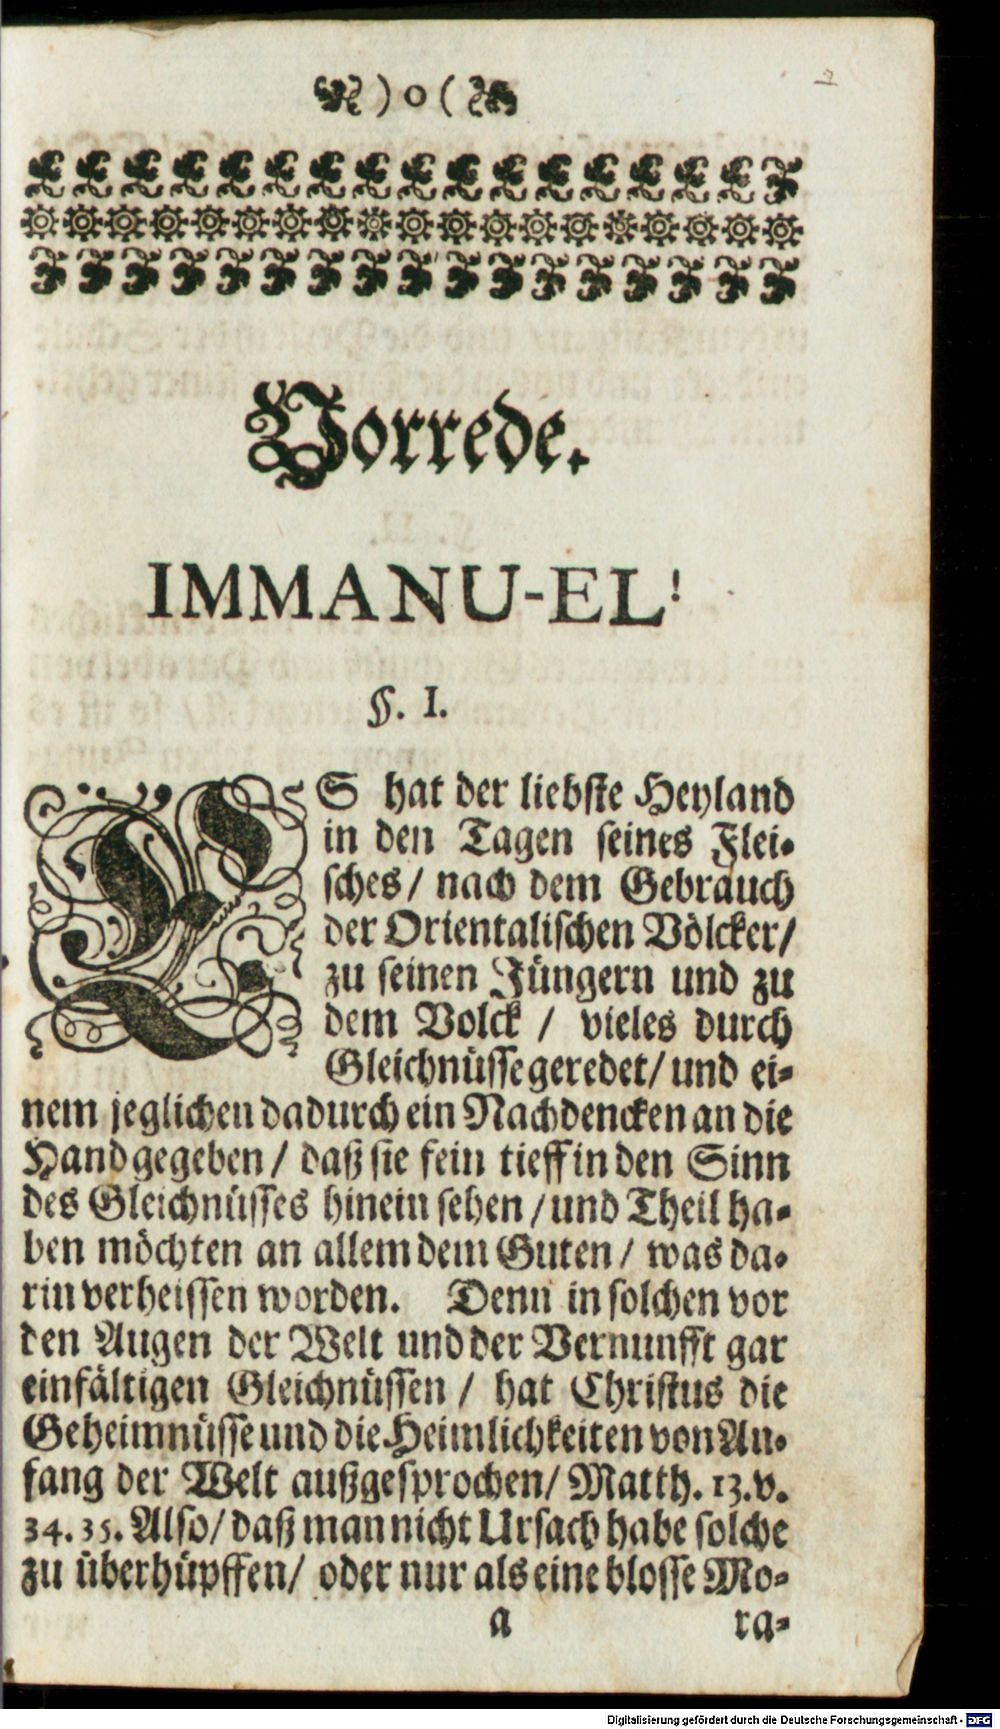 ) o (
Vorrede.
IMMANU-EL!
§. I.
ES hat der liebste Heyland
in den Tagen seines Flei-
sches / nach dem Gebrauch
der Orientalischen Völcker/
zu seinen Jüngern und zu
dem Volck / vieles durch
Gleichnüsse geredet/ und ei-
nem jeglichen dadurch ein Nachdencken an die
Hand gegeben / daß sie fein tieff in den Sinn
des Gleichnüsses hinein sehen / und Theil ha-
ben möchten an allem dem Guten / was da-
rin verheissen worden. Denn in solchen vor
den Augen der Welt und der Vernunfft gar
einfältigen Gleichnüssen / hat Christus die
Geheimnüsse und die Heimlichkeiten von An-
fang der Welt außgesprochen/ Matth. 13. v.
34. 35. Also/ daß man nicht Ursach habe solche
zu überhüpffen/ oder nur als eine blosse Mo-
a ra-
Digitalisierung gefördert durch die Deutsche Forschungsgemeinschaft - DFG